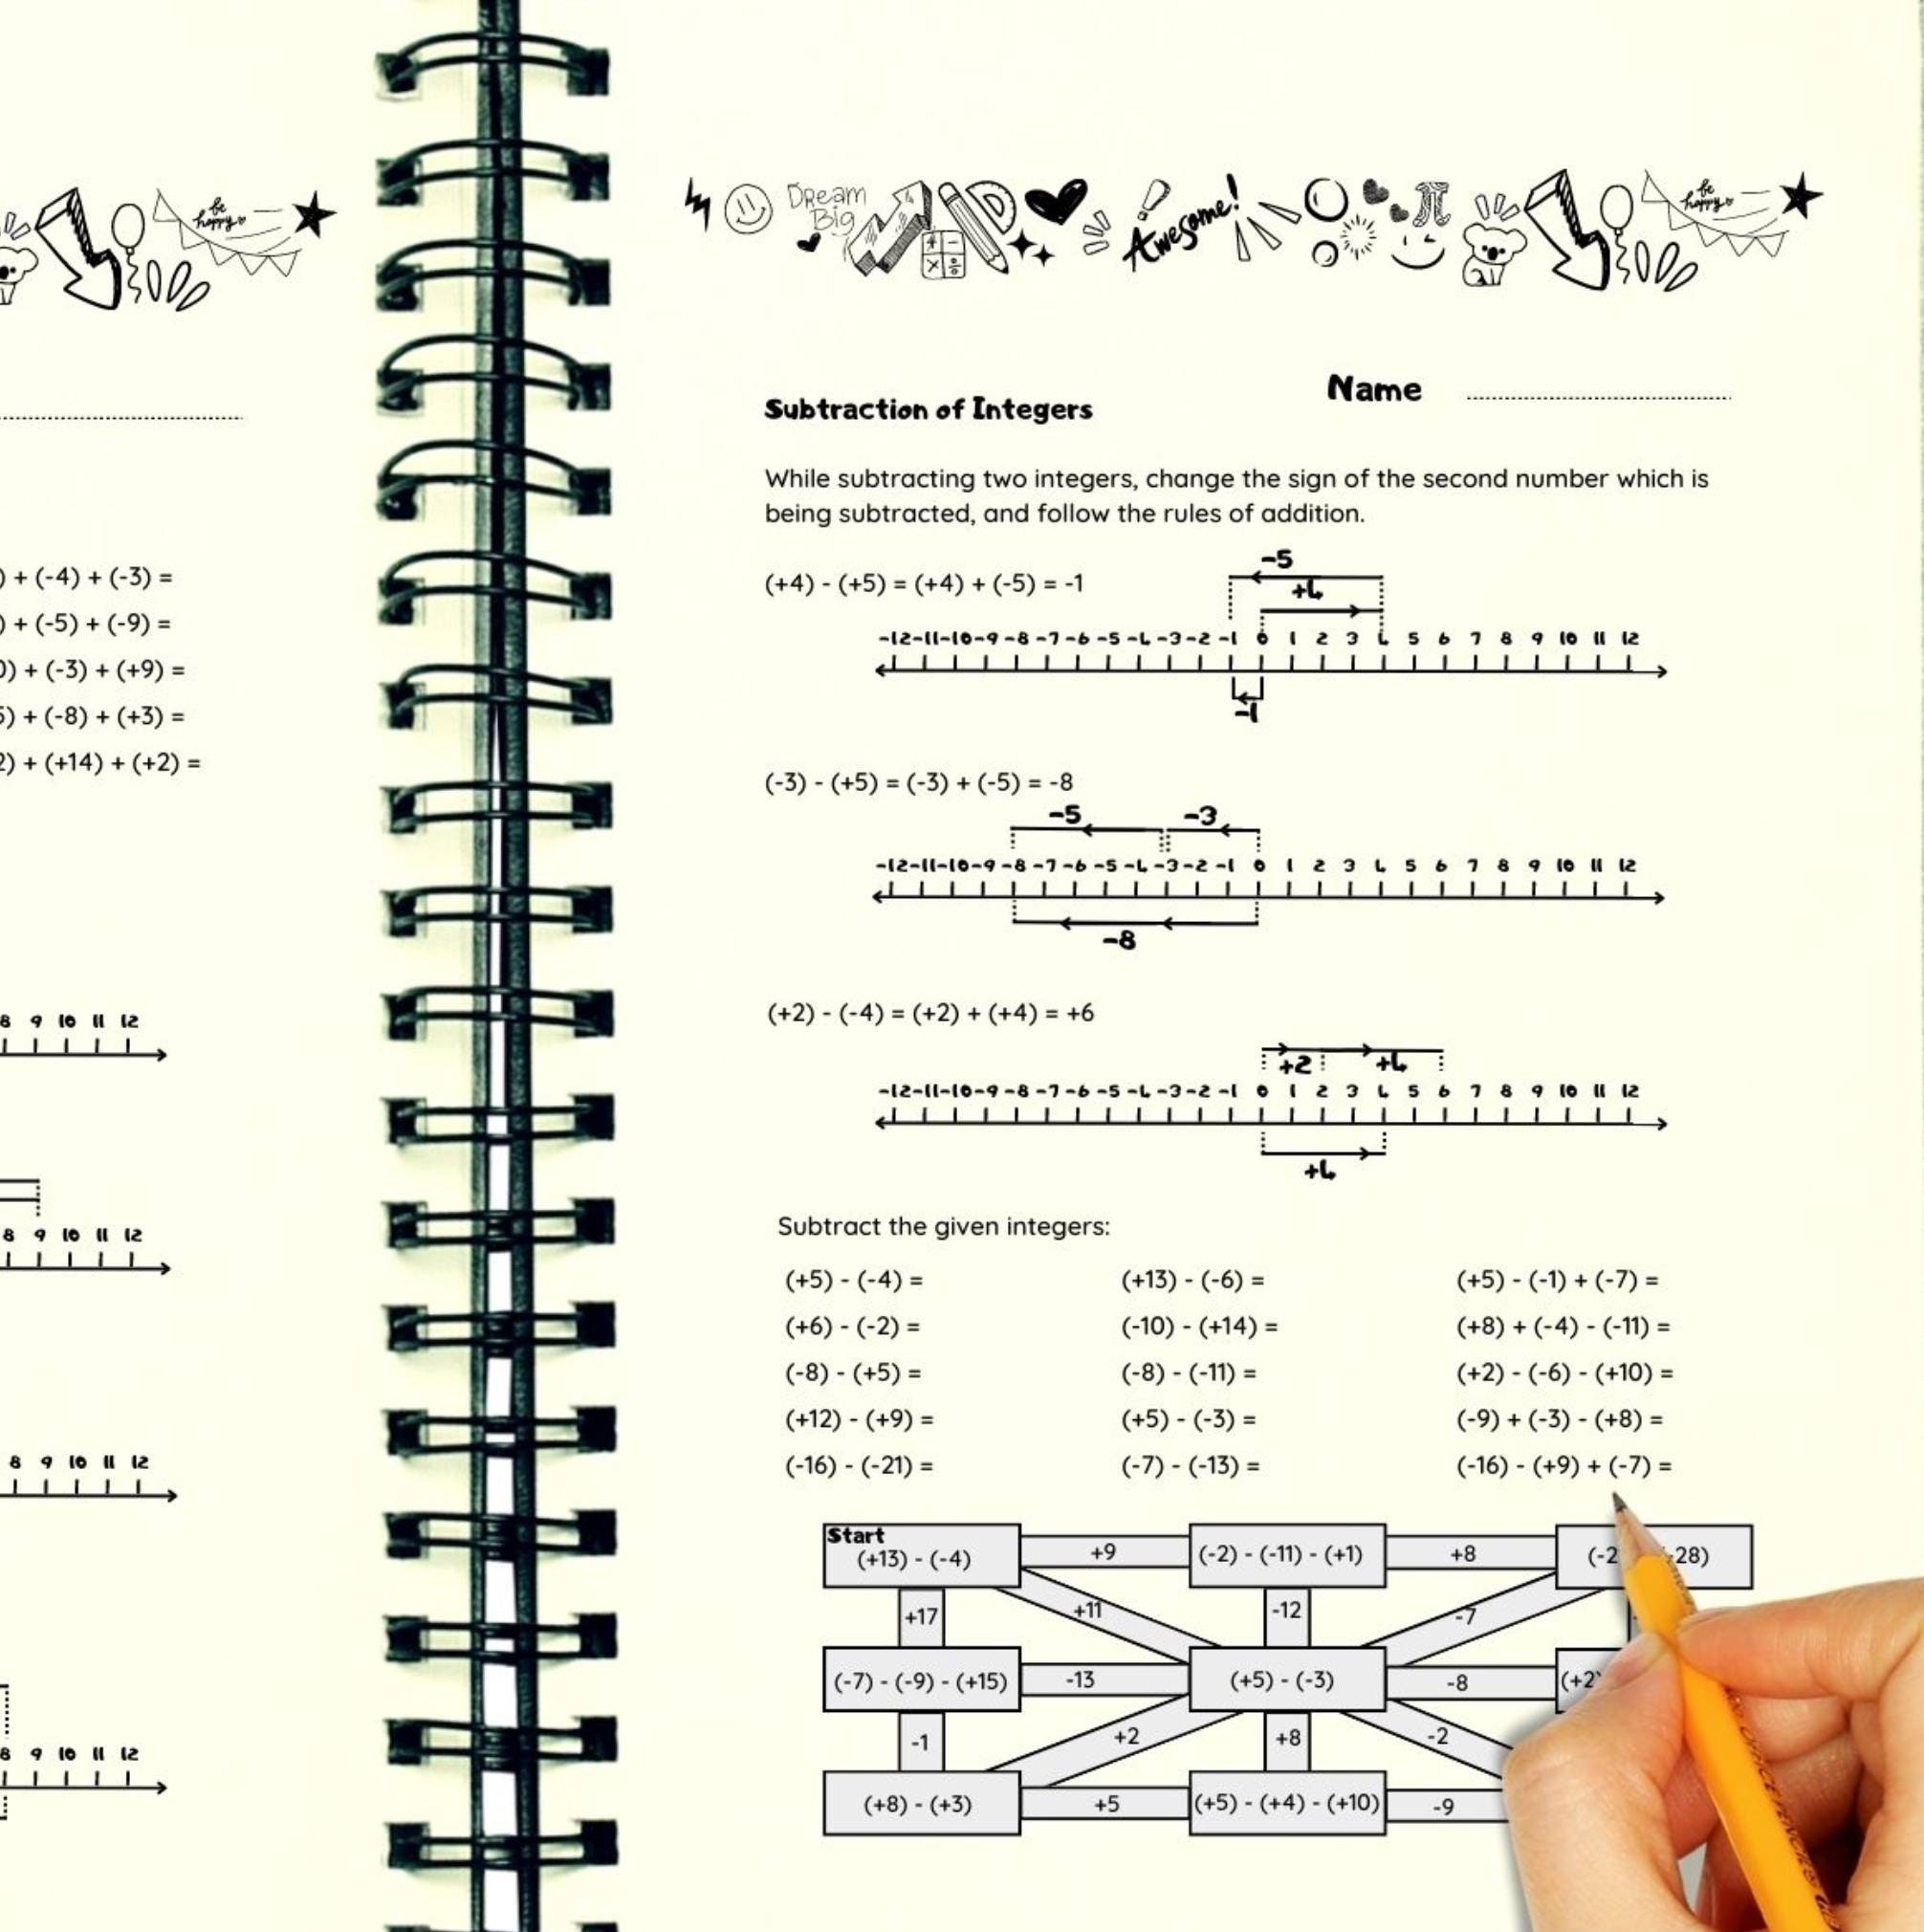 be
happy
) + (-4) + (-3) =
) + (-5) + (-9) =
0) + (-3) + (+9) =
5) + (-8) + (+3) =
2) + (+14) + (+2) =
8 9 10 11 12
8 9 10 11 12
8 9 10 11 12
8 9 10 11 12
Dream
Big
+ -
× ÷
Awesome!
π
be
happy
Name
Subtraction of Integers
While subtracting two integers, change the sign of the second number which is
being subtracted, and follow the rules of addition.
-5
(+4) - (+5) = (+4) + (-5) = -1
+4
-12 -11 -10 -9 -8 -7 -6 -5 -4 -3 -2 -1 0 1 2 3 4 5 6 7 8 9 10 11 12
-1
(-3) - (+5) = (-3) + (-5) = -8
-5 -3
-12 -11 -10 -9 -8 -7 -6 -5 -4 -3 -2 -1 0 1 2 3 4 5 6 7 8 9 10 11 12
-8
(+2) - (-4) = (+2) + (+4) = +6
+2 +4
-12 -11 -10 -9 -8 -7 -6 -5 -4 -3 -2 -1 0 1 2 3 4 5 6 7 8 9 10 11 12
+4
Subtract the given integers:
(+5) - (-4) = (+13) - (-6) = (+5) - (-1) + (-7) =
(+6) - (-2) = (-10) - (+14) = (+8) + (-4) - (-11) =
(-8) - (+5) = (-8) - (-11) = (+2) - (-6) - (+10) =
(+12) - (+9) = (+5) - (-3) = (-9) + (-3) - (+8) =
(-16) - (-21) = (-7) - (-13) = (-16) - (+9) + (-7) =
Start
(+13) - (-4) +9 (-2) - (-11) - (+1) +8 (-2 28)
+17 +11 -12 -7
(-7) - (-9) - (+15) -13 (+5) - (-3) -8 (+2)
-1 +2 +8 -2
(+8) - (+3) +5 (+5) - (+4) - (+10) -9